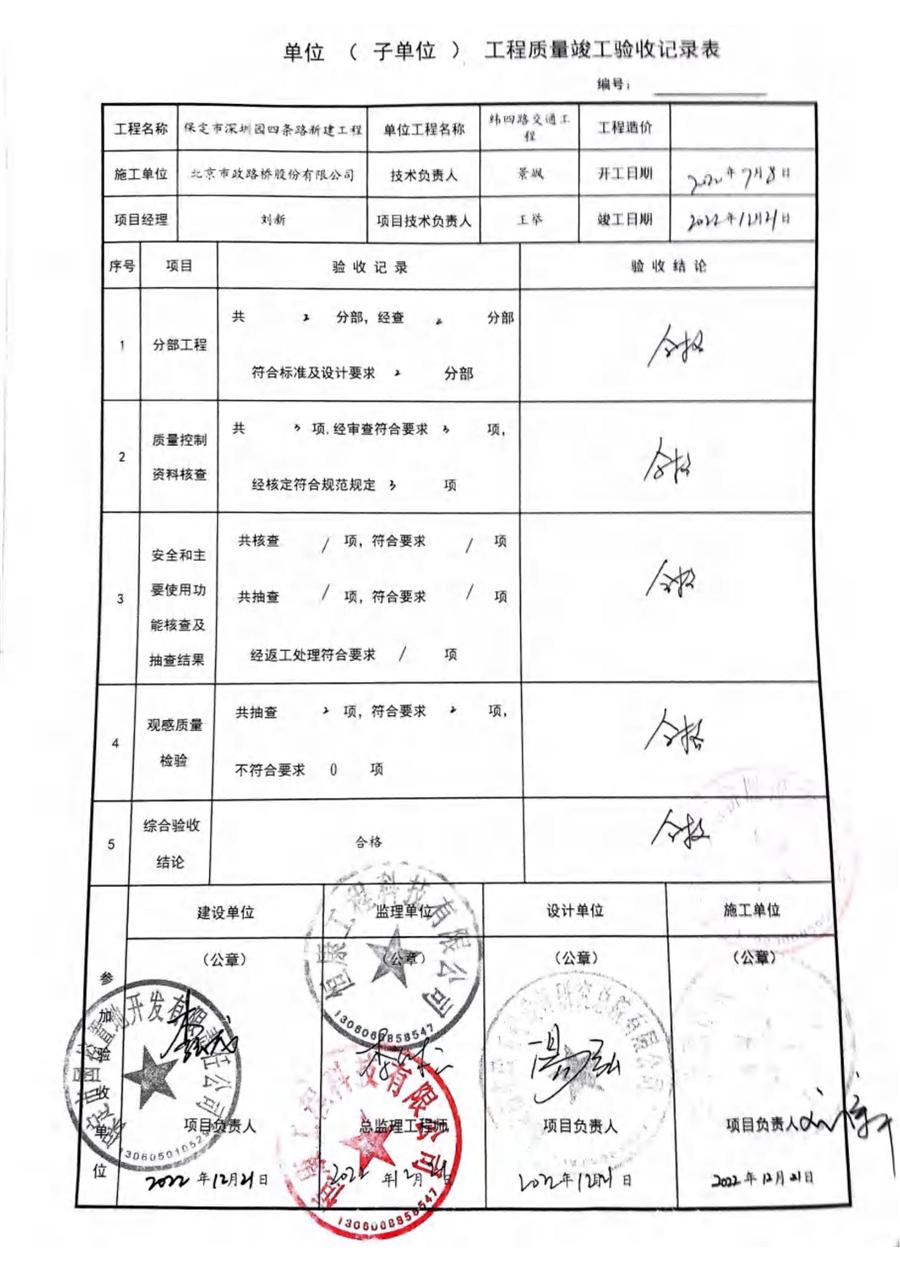 单位 （ 子单位 ） 工程质量竣工验收记录表
编号：
工程名称 保定市深圳园四条路新建工程 单位工程名称 纬四路交通工程 工程造价
施工单位 北京市政路桥股份有限公司 技术负责人 景飒 开工日期 2022年7月8日
项目经理 刘新 项目技术负责人 王举 竣工日期 2022年12月21日
序号 项目 验收记录 验收结论
1 分部工程 共 2 分部，经查 2 分部
符合标准及设计要求 2 分部
合格
2 质量控制
资料核查
共 3 项,经审查符合要求 3 项，
经核定符合规范规定 3 项
合格
3 安全和主
要使用功
能核查及
抽查结果
共核查 / 项，符合要求 / 项
共抽查 / 项，符合要求 / 项
经返工处理符合要求 / 项
合格
4 观感质量
检验
共抽查 2 项，符合要求 2 项，
不符合要求 0 项
合格
5 综合验收
结论
合格
合格
参加验收单位
建设单位 监理单位 设计单位 施工单位
（公章） （公章） （公章） （公章）
开发有限责任公司
恒康工程科技有限公司
1306068858547
项目负责人 总监理工程师 项目负责人 项目负责人 刘新
2022年12月21日 2022年12月21日 2022年12月21日 2022年12月21日
科技有限公司
1306068858547